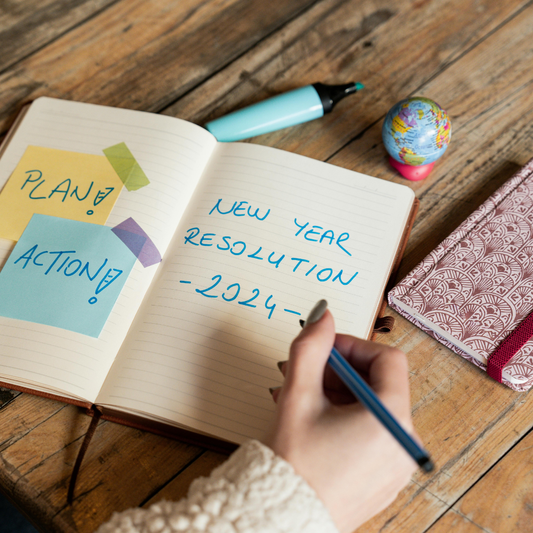 PLAN!
ACTION!
NEW YEAR
RESOLUTION
-2024-